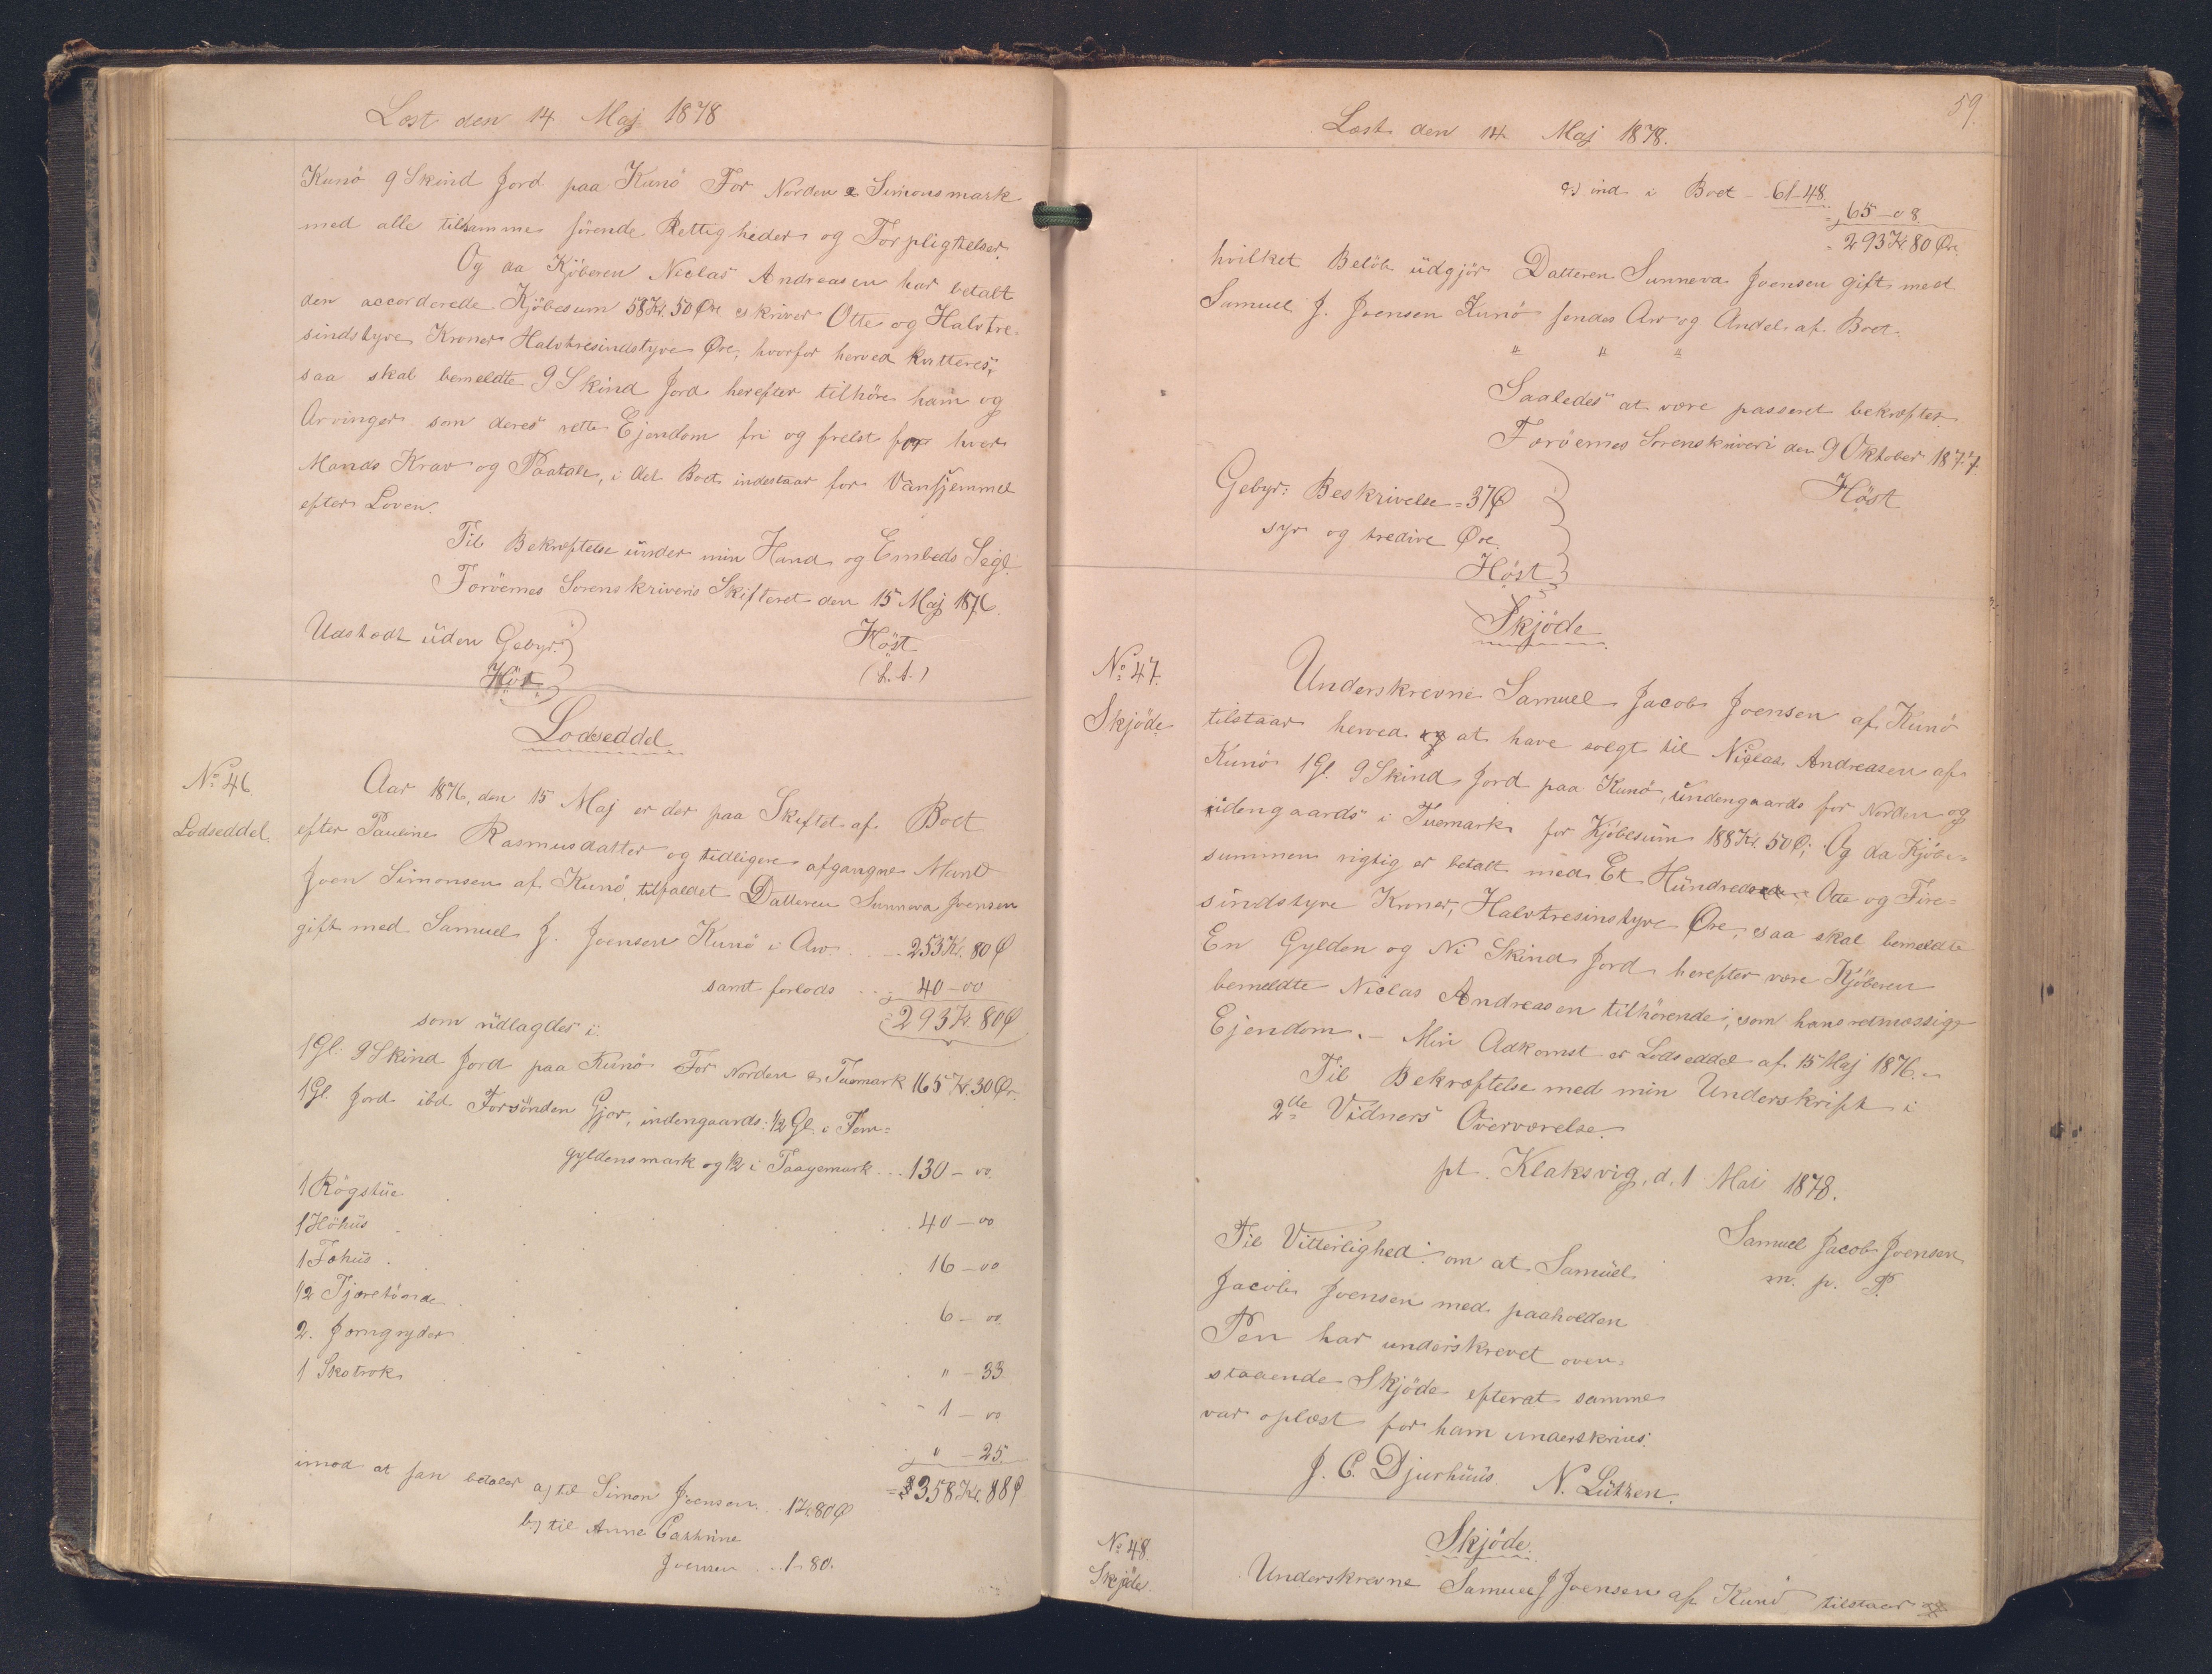 Læst den 14 Maj 1878
Kunö 9 Skind Jord paa Kunö For Norden & Simonsmark
med alle tilsamme hörende Rettigheder og Forpligtelser.
Og da Kjöberen Niclas Andreasen har betalt
den accorderede Kjöbesum 58 Kr. 50 Øre skriver Otte og Halvtre-
sindstyve Kroner Halvtresindstyve Øre, hvorfor herved kvitteres,
saa skal bemeldte 9 Skind Jord herefter tilhöre ham og
Arvinger som deres rette Ejendom fri og frelst for hver
Mands Krav og Paatale, i det Boet indestaar for Vanhjemmel
efter Loven.
Til Bekræftelse under min Haand og Embeds Segl.
Færöernes Sorenskriveri Skifteret den 15 Maj 1876.
Udstedt uden Gebyr.
Höst
Höst
(L.S.)
Lodseddel
No. 46
Lodseddel.
Aar 1876, den 15 Maj er der paa Skiftet af Boet
efter Pauline Rasmusdatter og tidligere afgangne Mand
Joen Simonsen af Kunö, tilfaldet Datteren Sunneva Joensen
gift med Samuel J. Joensen Kunö i Arv . . . 253 Kr. 80 Ø
samt forlods . . . 40 - 00
= 293 Kr. 80 Ø
som udlagdes i:
1 Gl. 9 Skind Jord paa Kunö For Norden & Tuemark 165 Kr. 30 Ør.
1 Gl. Jord ibd Forsönden Gjor, indengaards: 1/2 Gl. i Fem-
gyldensmark og 1/2 i Taagemark . . . 130 - 00.
1 Rögstue
1 Höhus . . . 40 - 00
1 Fæhus . . . 16 - 00
1/2 Tjæretönde . . . 6 - 00.
2. Jerngryder
1 Skotrok . . . " - 33
- 1 - 00
" - 25.
= 358 Kr. 88 Ø
imod at han betaler a) til Simon Joensen . . 1 Kr. 80 Ø
b) til Anne Cathrine
Joensen . . . 1 - 80.
59.
Læst den 14 Maj 1878.
c) ind i Boet - 61 - 48.
- 65 - 08.
= 293 Kr 80 Ør.
hvilket Belöb udgjör Datteren Sunneva Joensen gift med
Samuel J. Joensen Kunö hendes Arv og Andel af Boet.
" " "
Saaledes at være passeret bekræfter.
Færöernes Sorenskriveri den 9 Oktober 1877.
Höst
Gebyr: Beskrivelse = 37 Ø
syv og tredive Øre.
Höst
Skjöde
No. 47.
Skjöde
Underskrevne Samuel Jacob Joensen af Kunö
tilstaar herved og at have solgt til Niclas Andreasen af
Kunö 1 Gl. 9 Skind Jord paa Kunö, indengaards for Norden og
udengaards i Tuemark for Kjöbesum 188 Kr. 50 Ø; Og da Kjöbe-
summen rigtig er betalt med Et Hundrede Otte og Fire-
sindstyve Kroner, Halvtresinstyve Øre, saa skal bemeldte
En Gylden og Ni Skind Jord herefter være Kjöberen
bemeldte Niclas Andreasen tilhörende, som hans retmæssige
Ejendom. - Min Adkomst er Lodseddel af 15 Maj 1876. -
Til Bekræftelse med min Underskrift i
2de Vidners Overværelse.
pt. Klaksvig, d. 1 Mai 1878.
Samuel Jacob Joensen
m. p. P.
Til Vitterlighed om at Samuel
Jacob Joensen med paaholden
Pen har underskrevet oven-
staaende Skjöde efterat samme
var oplæst for ham underskrives.
J. C. Djurhuus. N. Lützen.
Skjöde.
No. 48.
Skjöde.
Underskrevne Samuel J Joensen af Kunö tilstaar